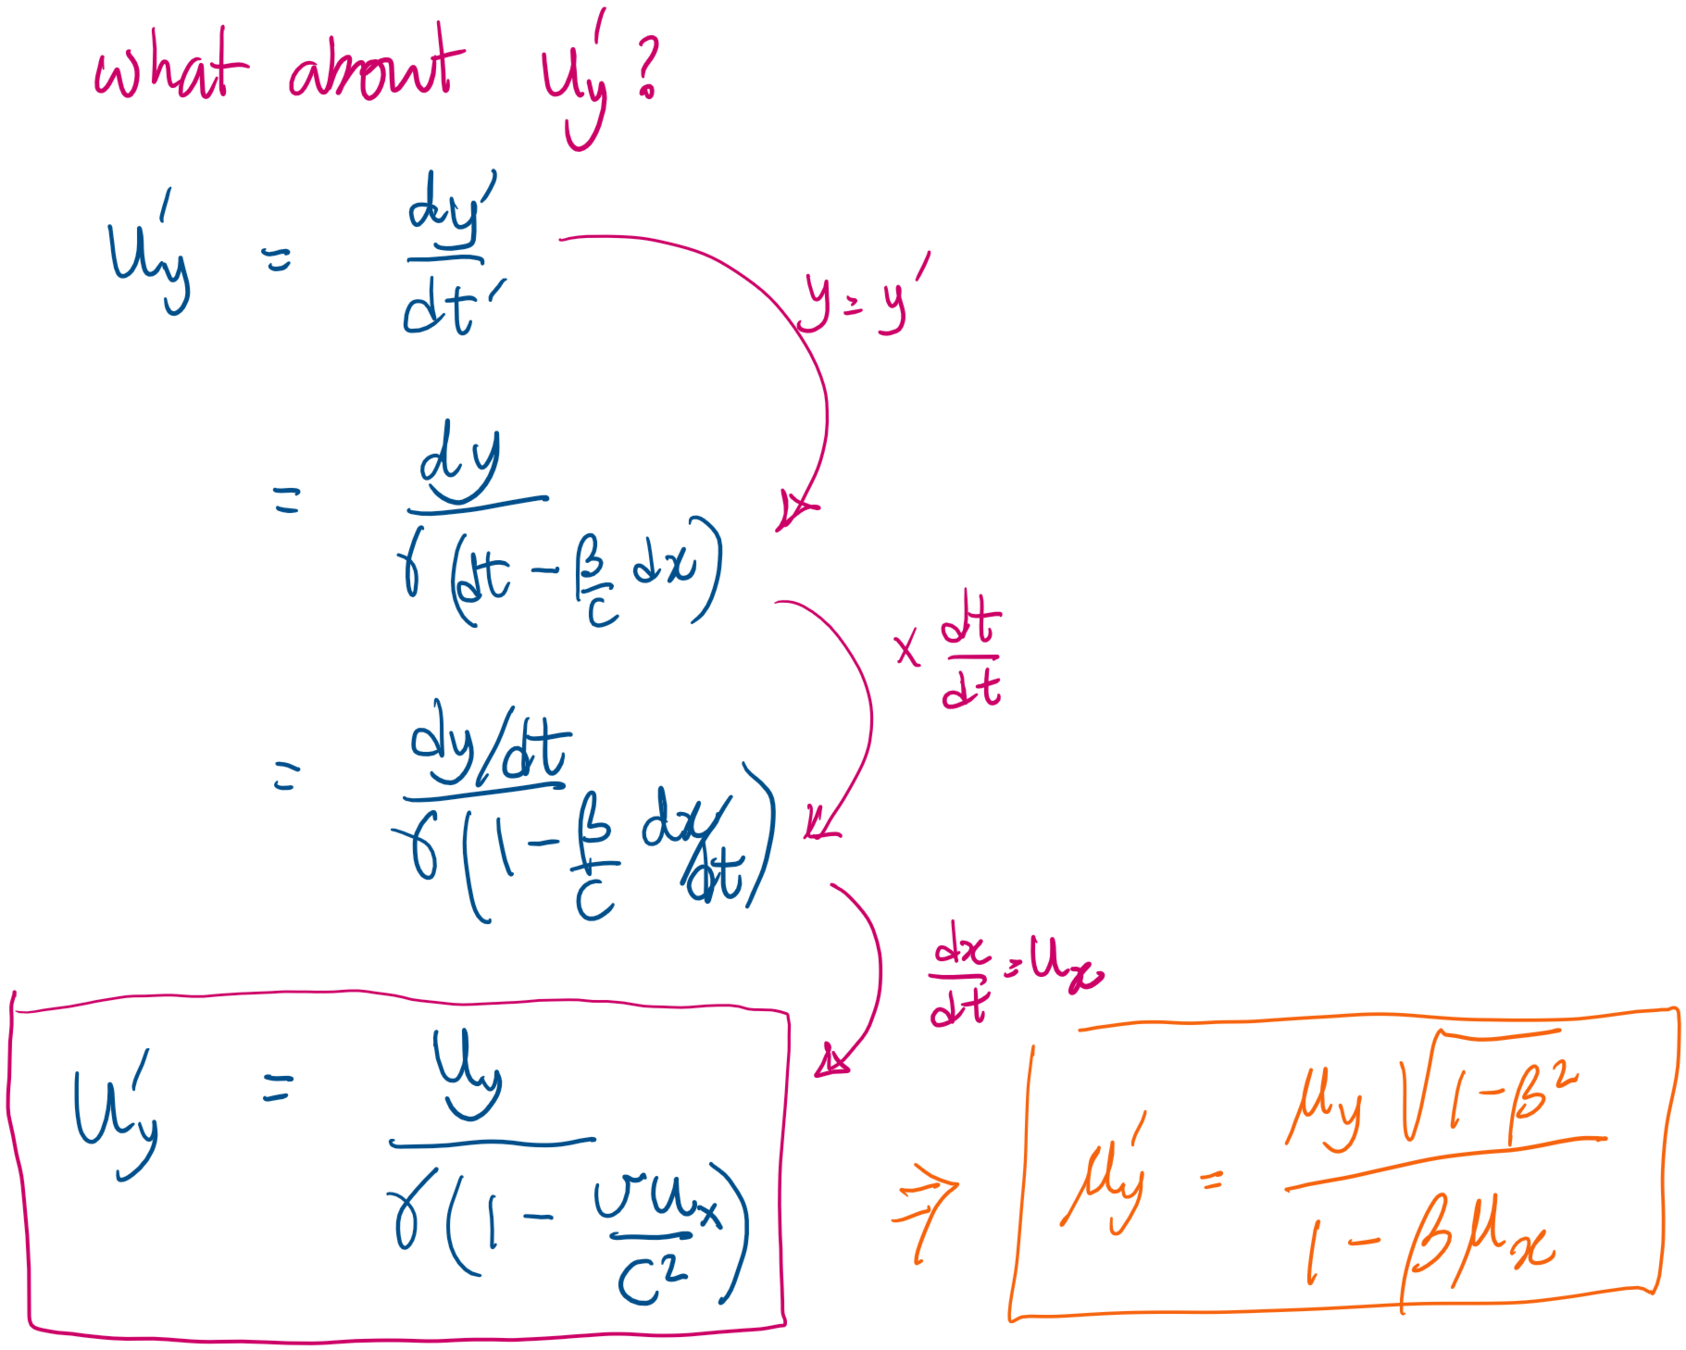 what about u'y?
u'y = dy'/dt'
y = y'
= dy / γ(dt − β/c dx)
× dt/dt
= dy/dt / γ(1 − β/c dx/dt)
dx/dt = ux
u'y = uy / γ(1 − vux/c²)
⇒ μ'y = μy √(1−β²) / 1 − βμx